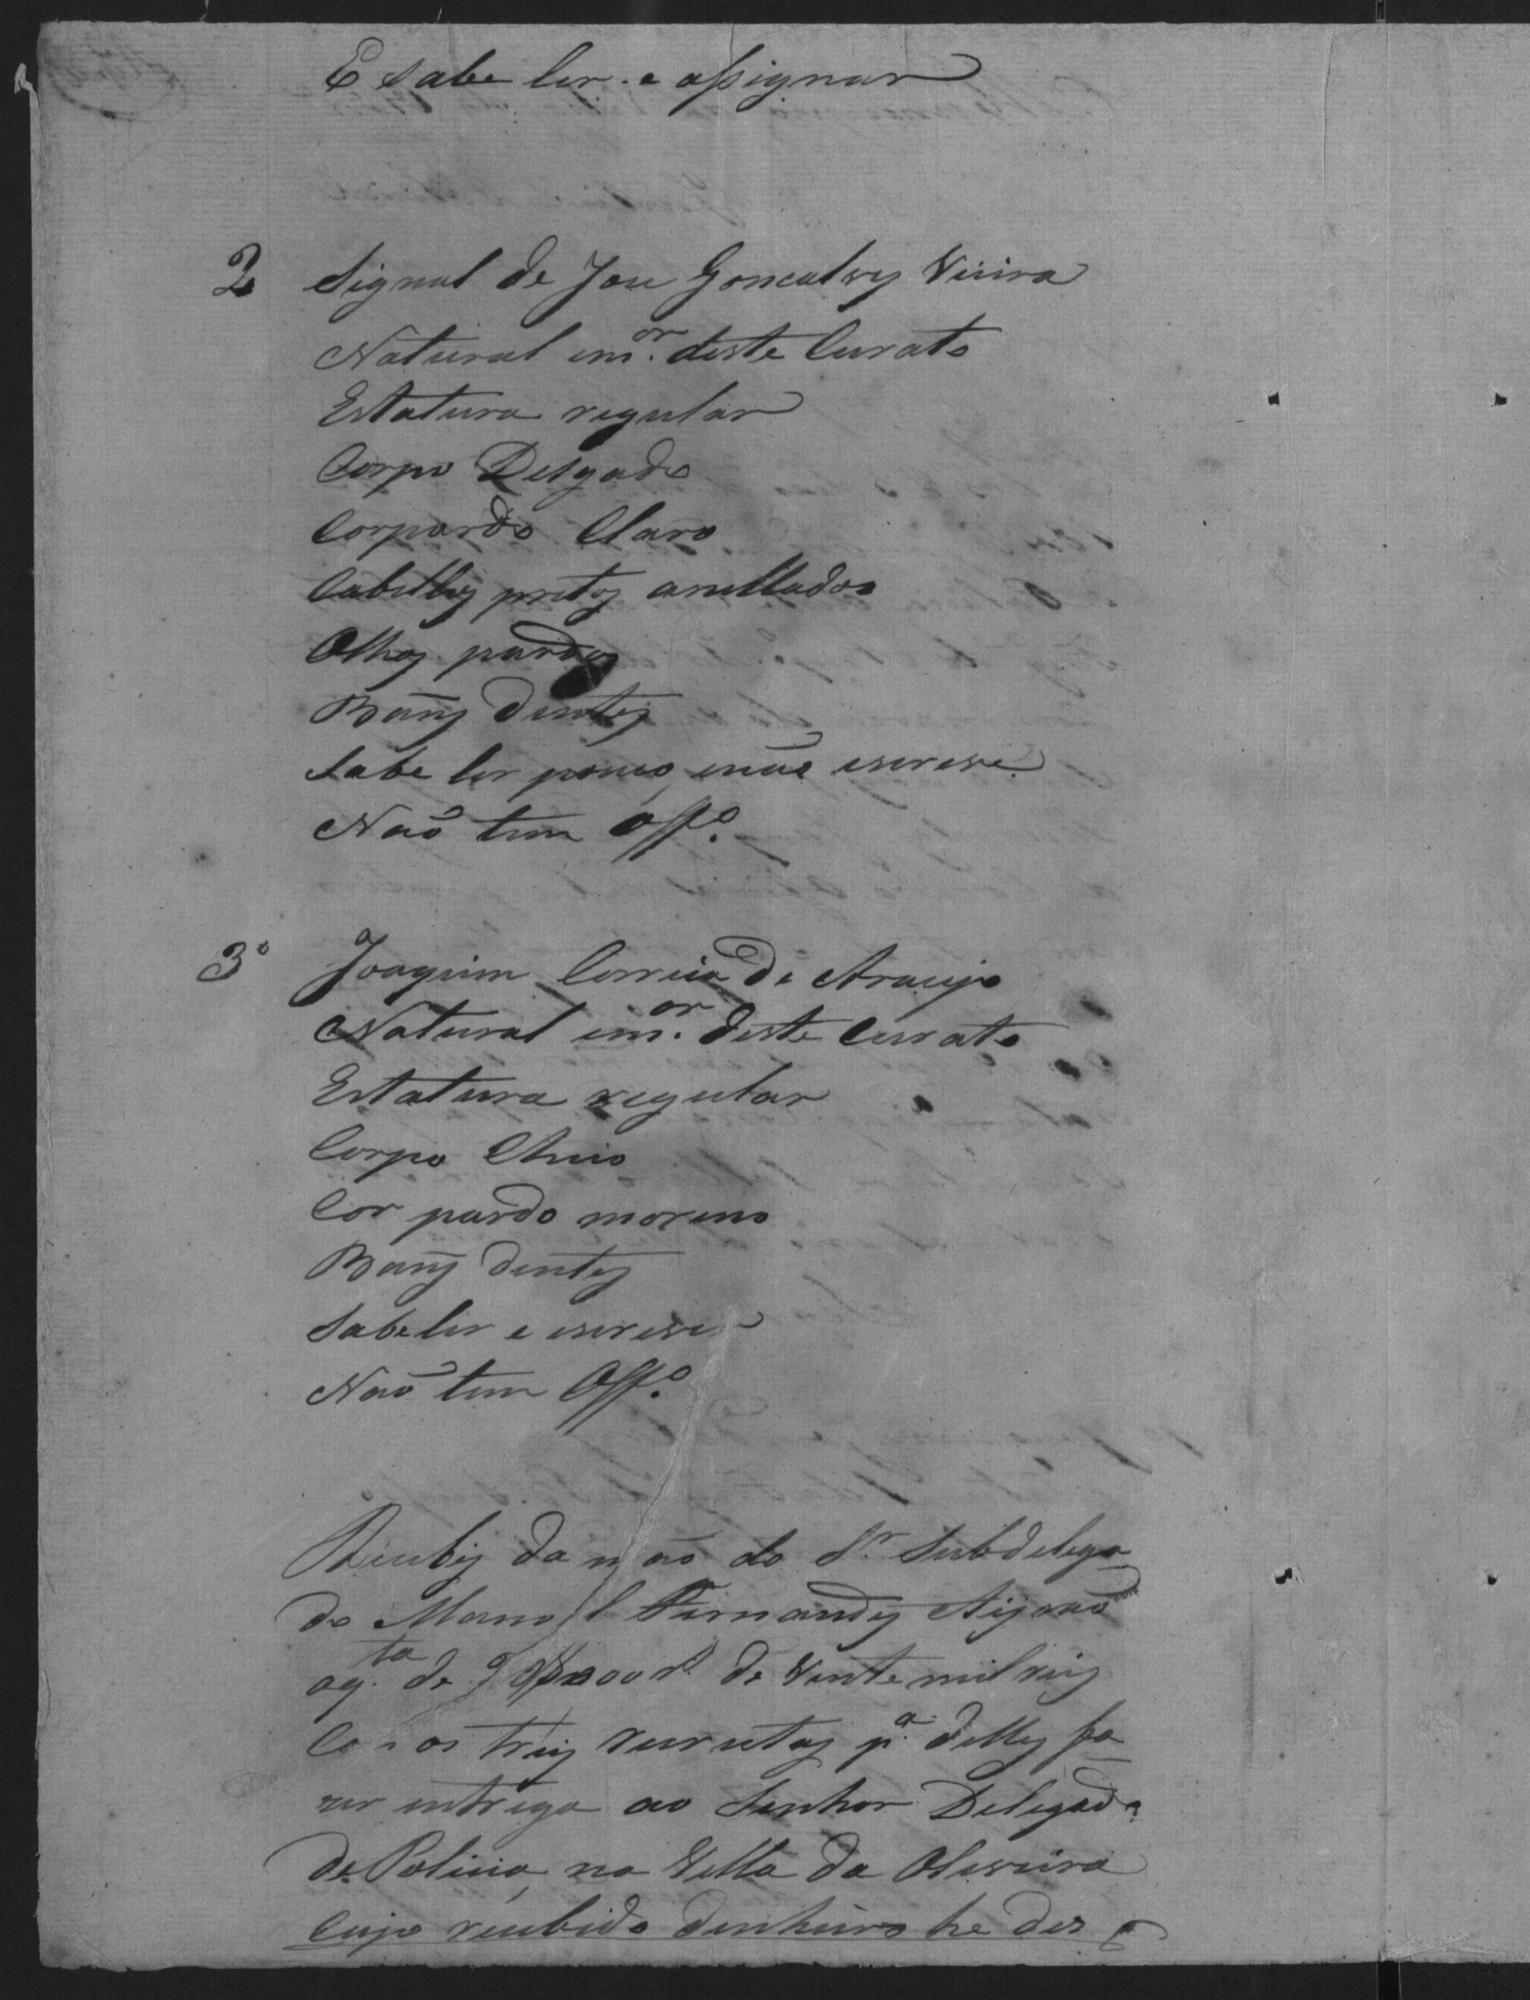 E sabe ler e assignar
2 Signal de Jose Goncalves Vieira
Natural em.or deste Curato
Estatura regular
Corpo Delgado
Cor pardo Claro
Cabellos pretos anellados
Olhos pardos
Bons dentes
Sabe ler pouco, enaõ escreve
Naõ tem Off.º
3º Joaquim Correia de Araujo
Natural em.or deste Curato
Estatura regular
Corpo Cheio
Cor pardo moreno
Bons dentes
Sabe ler e escrever
Naõ tem Off.º
Recebi da mão do Sr. Subdelega
do Manoel Fernandes
aq.ta de de Vinte mil reis
Com os treis recrutas p.a delles fa
zer entrega ao Senhor Delegado
de Policia, na Villa da Oliveira
Cujo recebido dinheiro he des